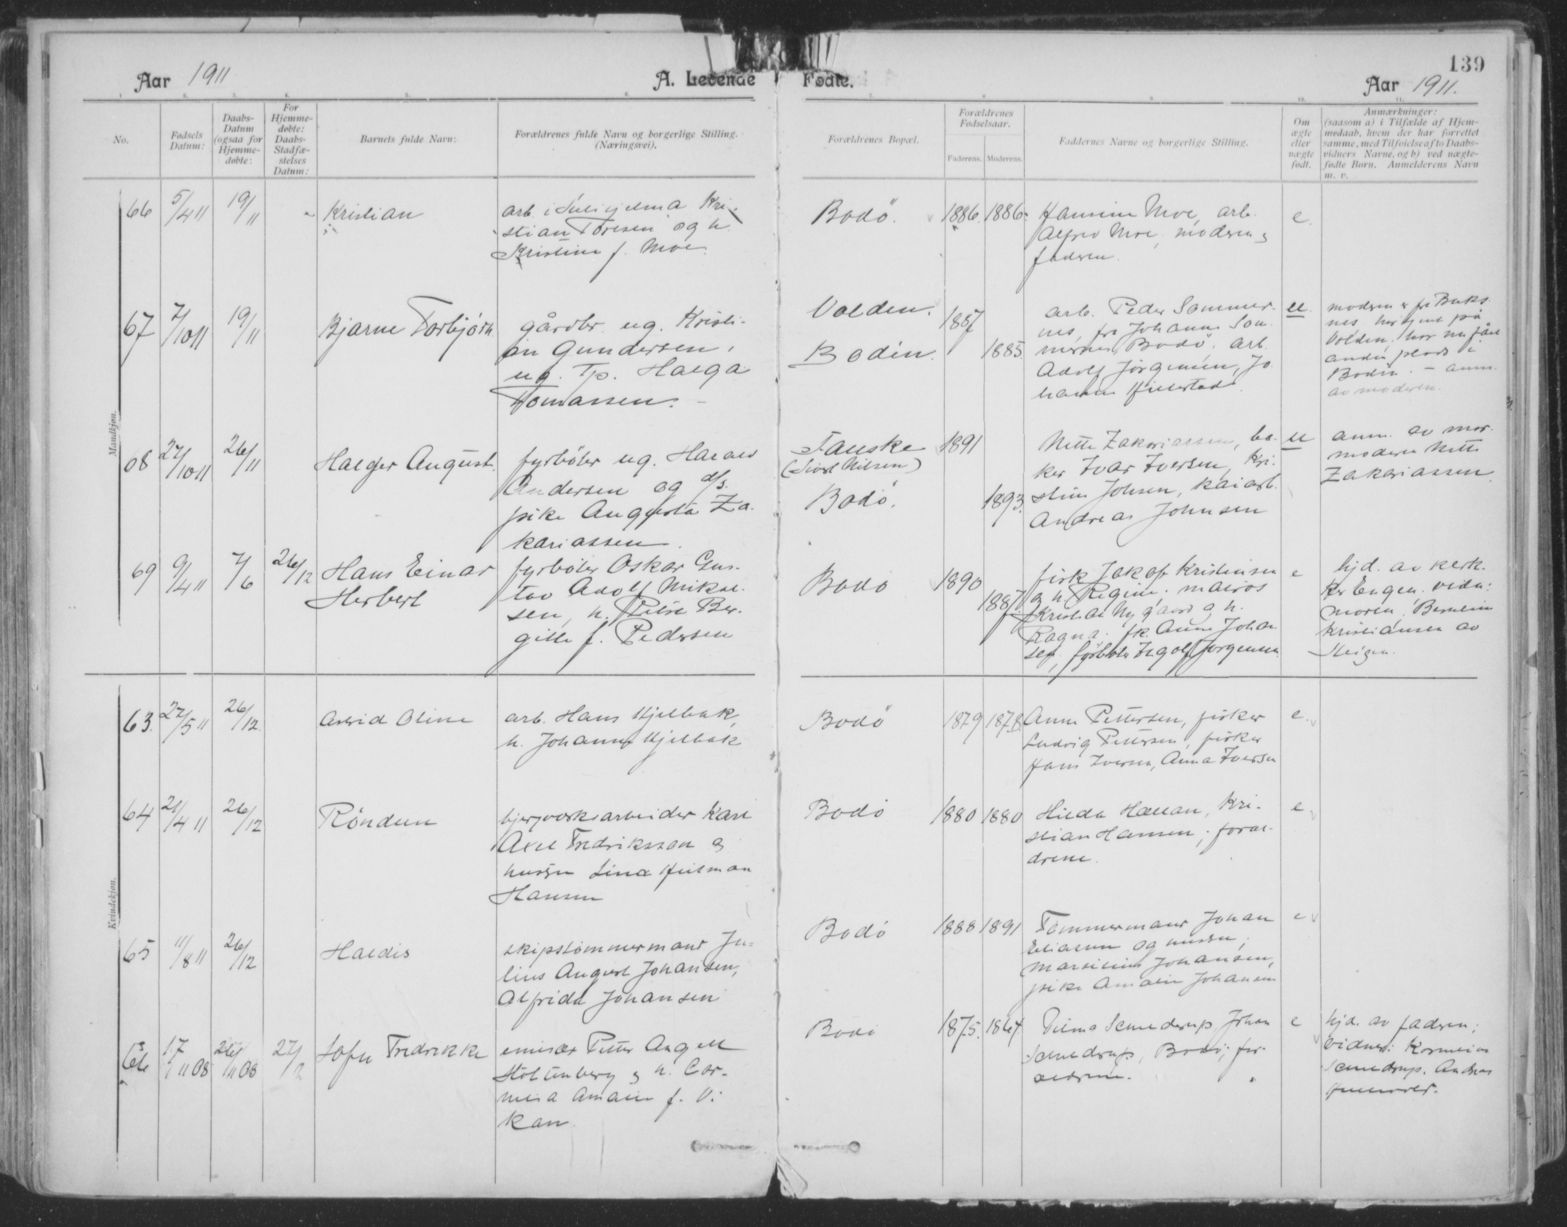 139
Aar 1911
A. Levende Fødte.
Aar 1911.
No.
Fødsels Datum:
Daabs-Datum (ogsaa for Hjemme-døbte:
For Hjemme-døbte: Daabs-Stadfæ-stelses Datum:
Barnets fulde Navn:
Forældrenes fulde Navn og borgerlige Stilling. (Næringsvei).
Forældrenes Bopæl.
Forældrenes Fødselsaar.
Faderens. Moderens.
Faddernes Navne og borgerlige Stilling.
Om ægte eller uægte født.
Anmærkninger:
(saasom a) i Tilfælde af Hjem-
medaab, hvem der har forrettet
samme, med Tilføielse af to Daabs-
vidners Navne, og b) ved uægte-
fødte Børn, Anmelderens Navn
m. v.
Mandkjøn.
66 5/4 11 19/11 Kristian
arb. i Sulitjelma Kri-
stian Toresen og h.
Kristine f. Moe.
Bodö. 1886 1886
Hansine Moe, arb.
Alfred Moe, moderen
faderen.
e.
67 7/10 11 19/11 Bjarne Torbjörn
gårdbr. ug. Kristi-
an Gundersen,
ug. Tp. Helga
Tomassen.
Valden. 1857
Bodin. 1885
arb. Peder Sommer-
nes, fr. Johanna Som-
mernes, Bodö. arb.
Adolf Jörgensen, Jo
hanna
u
moderen er fr. Buks
nes, har tjent på
Valden, har nu fået
anden plads i
Bodin. - anm.
av moderen.
68 27/10 11 26/11 Helger August
fyrböter ug. Harald
Andersen og d/s.
pike Augusta Za-
kariassen.
Fauske 1891
(Sivert Nilsen)
Bodö. 1893.
Nette Zakariassen, ba-
ker Ivar Iversen, Kri-
stine Johsen, kaiarb.
Andreas Johnsen
u
anm. av mor-
moderen Nette
Zakariassen.
69 9/4 11 7/6 26/12 Hans Einar
Herbert
fyrböter Oskar Gus-
tav Adolf Mikal-
sen, h. Petra Ber-
gitte f. Pedersen
Bodö 1890 1887
fisk. Jakob Kristensen
og h. Regine.
Kristian Nygaard og h.
Ragna. fk. Anna Johan
sen, fyrböter Ingolf Jörgensen
e
hjd. av kirk.
Kr. Engen. vidn:
Kristiansen av
Steigen.
Kvindekjøn.
63. 22/5 11 26/12 Astrid Oline
arb. Hans Kjelbak,
h. Johanna Kjelbak
Bodö 1879 1878
Anna Pettersen, fisker
Ludvig Pettersen, fisker
Hans Iversen, Anna Iversen
e.
64 21/4 11 26/12 Röndun
bjergverksarbeider Karl
Axel Fredriksson og
hustru Lina
Hansen
Bodö 1880 1880
Hilda Hansen, Kri-
stian Hansen, foræl-
drene.
e
65 11/8 11 26/12 Haldis
skipstömmermand Ju-
lius August Johansen,
Alfrida Johansen
Bodö 1888 1891
Tömmermand Johan
Eliassen og hustru,
Marselius Johansen,
pike Amalie Johansen
e
66 17/11 08 26/11 08 27/12 Sofie Fredrikke
emissær Petter Angell
Stoltenberg og h. Cor-
nelia Amalie f. Vi-
kan.
Bodö 1875. 1864
Schieldrup, Johan
Schieldrup, Bodö; for-
ældrene.
e
hjd. av faderen;
vidner: Kornelius
Schieldrup, Andreas